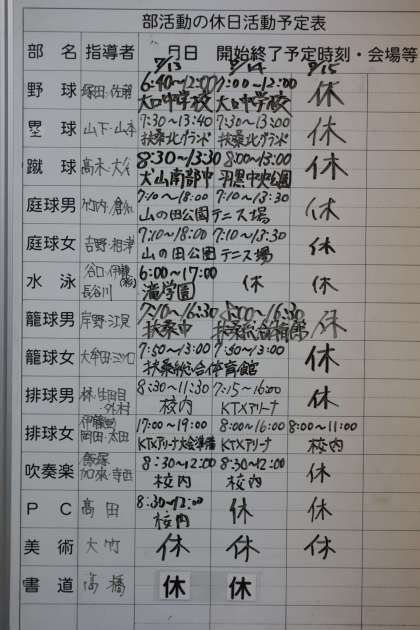 部活動の休日活動予定表
部 名 指導者 月日 開始終了予定時刻・会場等
9/13 9/14 9/15
野 球 塚田・佐藤 6:40~12:00 7:00~12:00 休
大口中学校 大口中学校
塁 球 山下・山本 7:30~13:40 7:30~13:00 休
扶桑北グランド 扶桑北グランド
蹴 球 高木・大谷 8:30~13:30 8:00~13:00 休
犬山南部中 羽黒中央公園
庭球男 竹内・倉知 7:10~18:00 7:10~13:30 休
山の田公園テニス場
庭球女 吉野・相津 7:10~18:00 7:10~13:30 休
山の田公園テニス場
水 泳 谷口・伊藤 6:00~17:00 休 休
長谷川 滝学園
籠球男 岸野・江見 7:10~16:30 8:00~16:30 休
扶桑中 扶桑総合体育館
籠球女 大牟田・ミツロ 7:50~13:00 7:50~13:00 休
扶桑総合体育館
排球男 林・生田目 8:30~11:30 7:15~16:00 休
・外村 校内 KTXアリーナ
排球女 伊藤 17:00~19:00 8:00~16:00 8:00~11:00
岡田・太田 KTXアリーナ大会準備 KTXアリーナ 校内
吹奏楽 飯塚 8:30~12:00 8:30~12:00 休
加来・寺西 校内 校内
P C 高田 8:30~12:00 休 休
校内
美 術 大竹 休 休 休
書 道 高橋 休 休